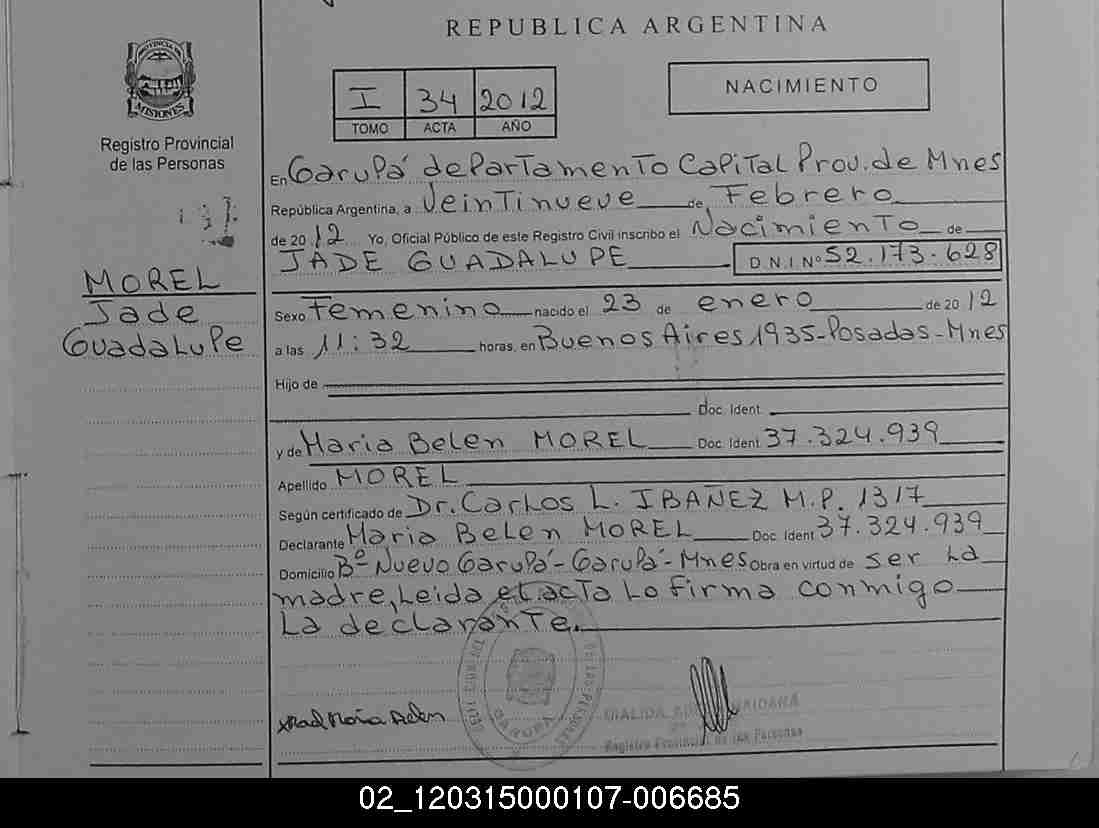 REPUBLICA ARGENTINA
PROVINCIA DE
MISIONES
Registro Provincial
de las Personas
I 34 2012
TOMO ACTA AÑO
NACIMIENTO
En Garupá departamento Capital Prov. de Mnes
República Argentina, a Veintinueve de Febrero
de 2012 Yo, Oficial Público de este Registro Civil inscribo el Nacimiento de
JADE GUADALUPE D.N.I Nº 52.173.628
MOREL
Jade
Guadalupe
Sexo Femenino nacido el 23 de enero de 2012
a las 11:32 horas, en Buenos Aires 1935-Posadas-Mnes
Hijo de
Doc. Ident.
y de Maria Belen MOREL Doc. Ident. 37.324.939
Apellido MOREL
Según certificado de Dr. Carlos L. IBAÑEZ M.P. 1317
Declarante Maria Belen MOREL Doc. Ident 37.324.939
Domicilio Bº Nuevo Garupá-Garupá-Mnes Obra en virtud de ser La
madre, Leida el acta Lo firma conmigo
La declarante.
GARUPA
DE LAS PERSONAS
Registro Provincial de las Personas
02_120315000107-006685